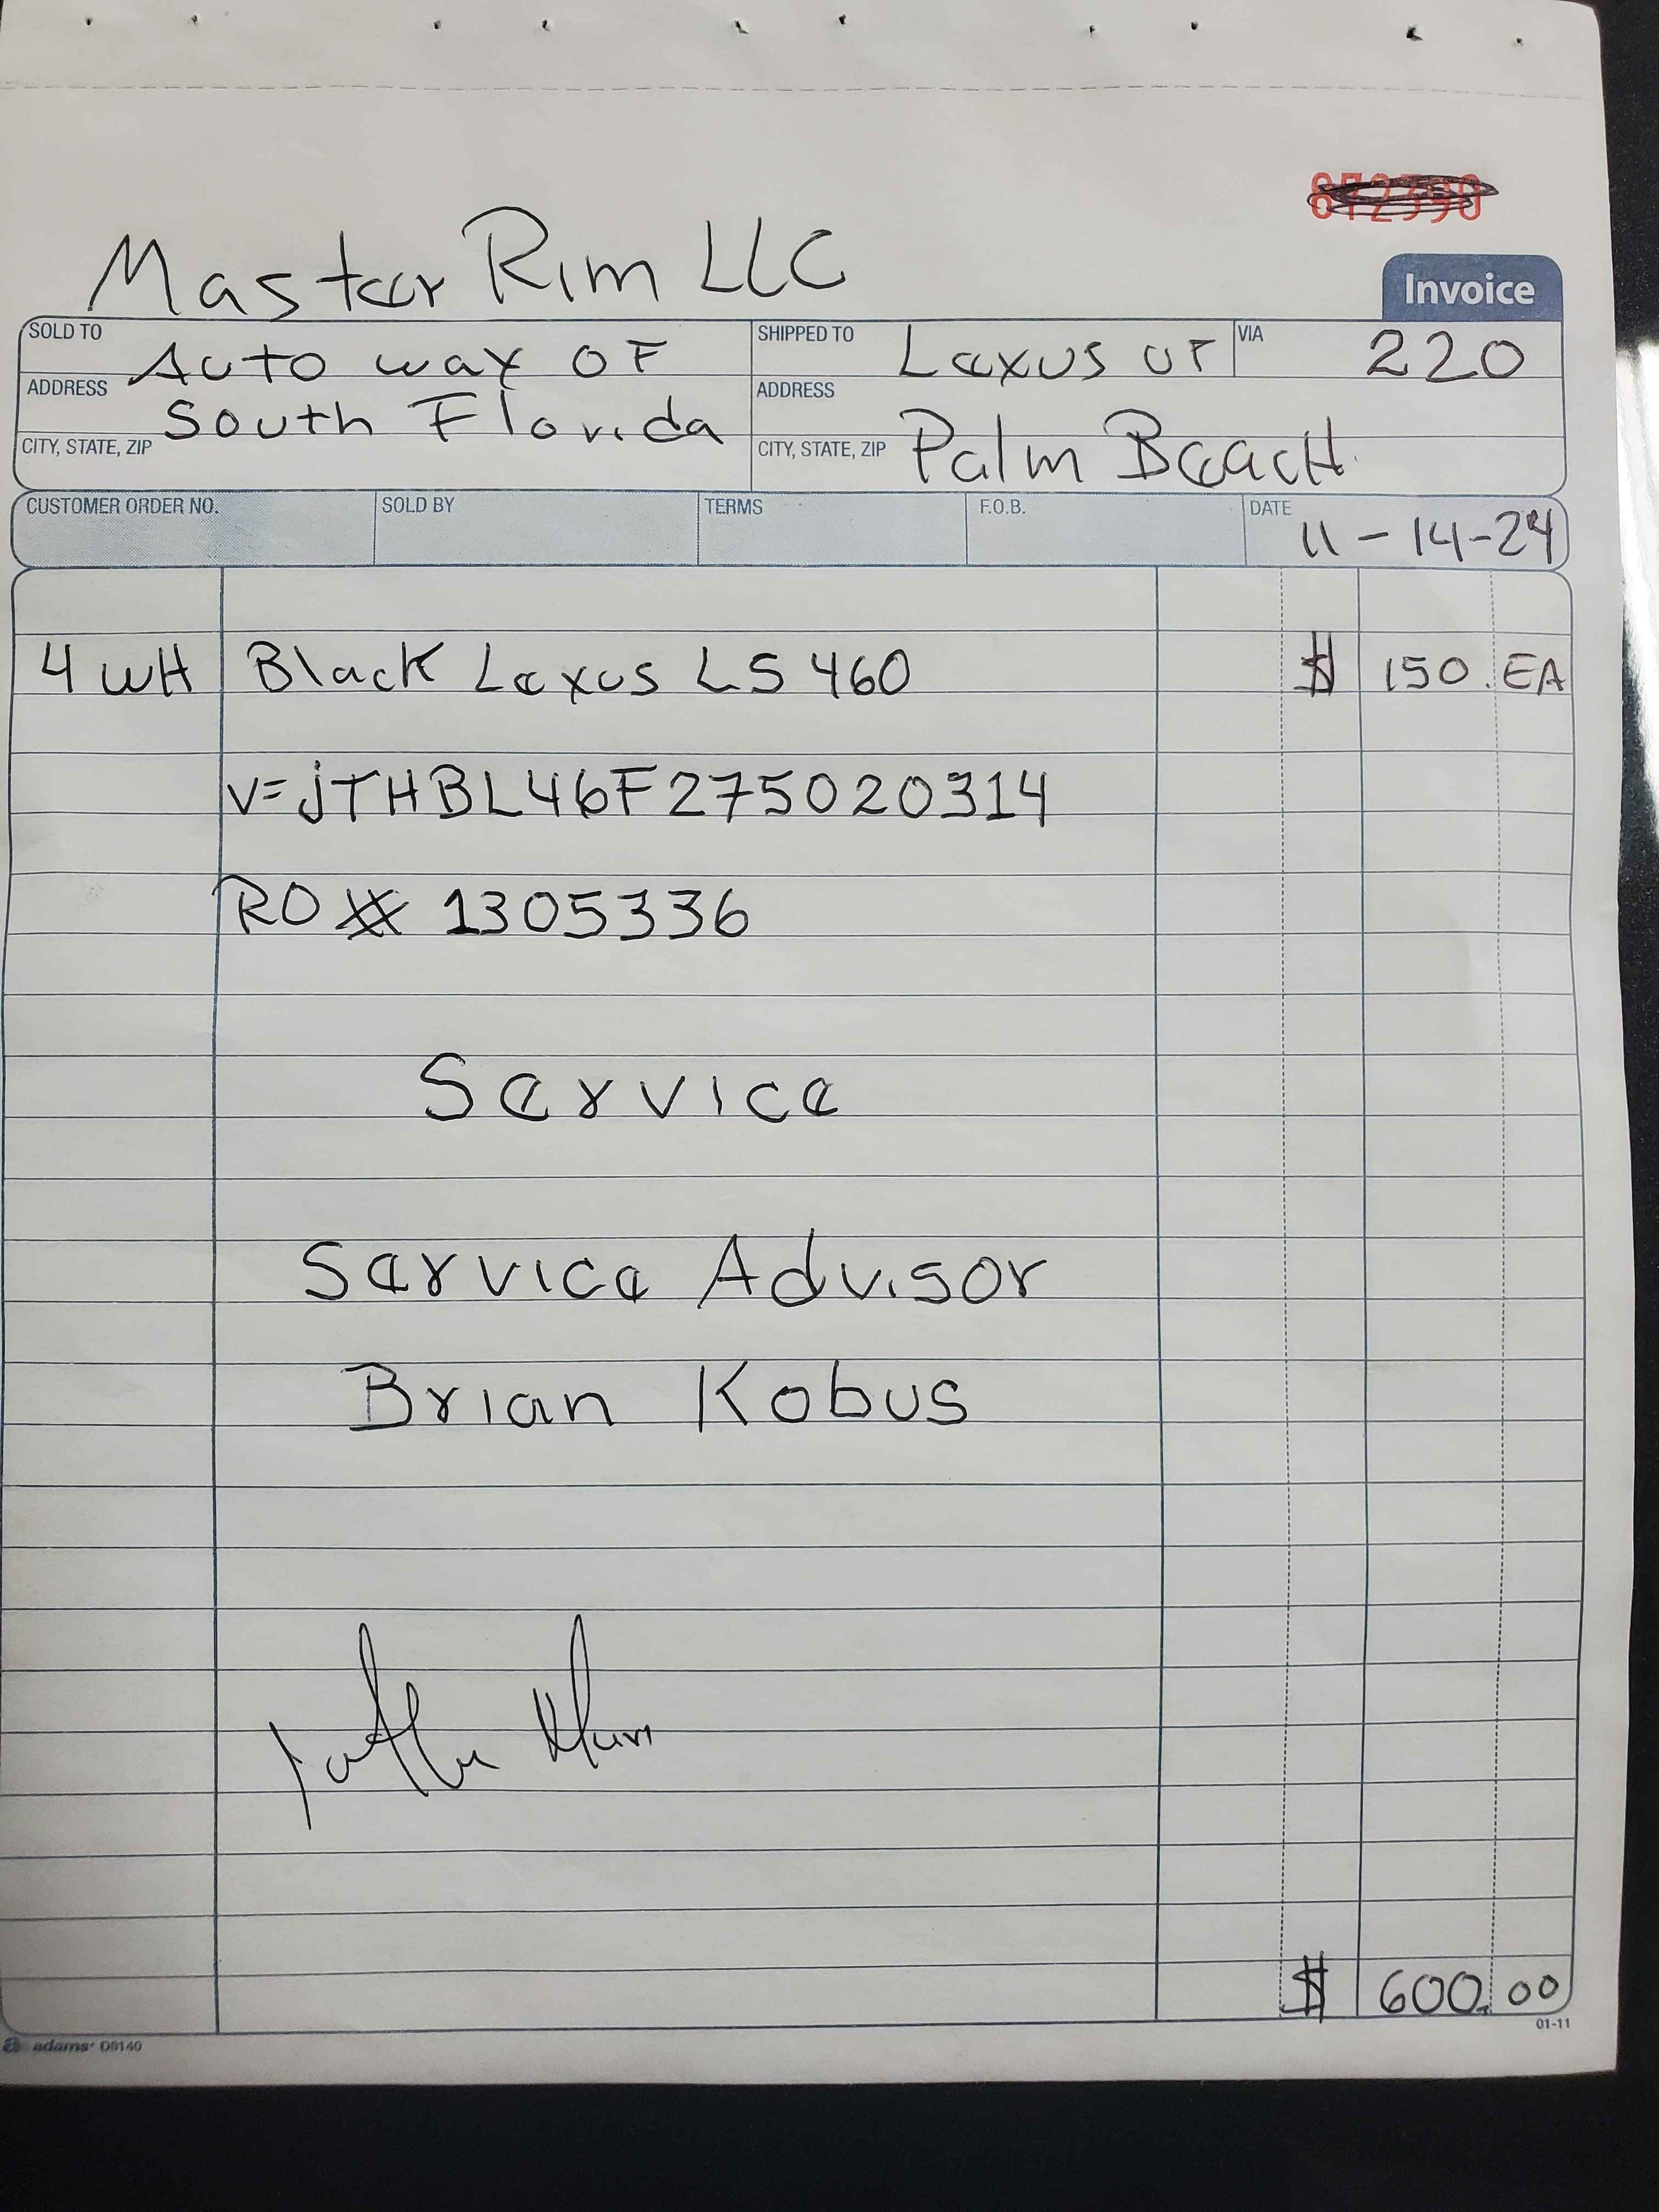 872390
Master Rim LLC
Invoice
SOLD TO Auto way OF
ADDRESS South Florida
CITY, STATE, ZIP
SHIPPED TO Lexus OF
ADDRESS
CITY, STATE, ZIP Palm BeacH
VIA 220
CUSTOMER ORDER NO. SOLD BY TERMS F.O.B. DATE 11-14-24
4 WH Black Lexus LS 460 $ 150. EA
V=jTHBL46F275020314
RO # 1305336
Service
Service Advisor
Brian Kobus
$ 600.00
adams D8140
01-11